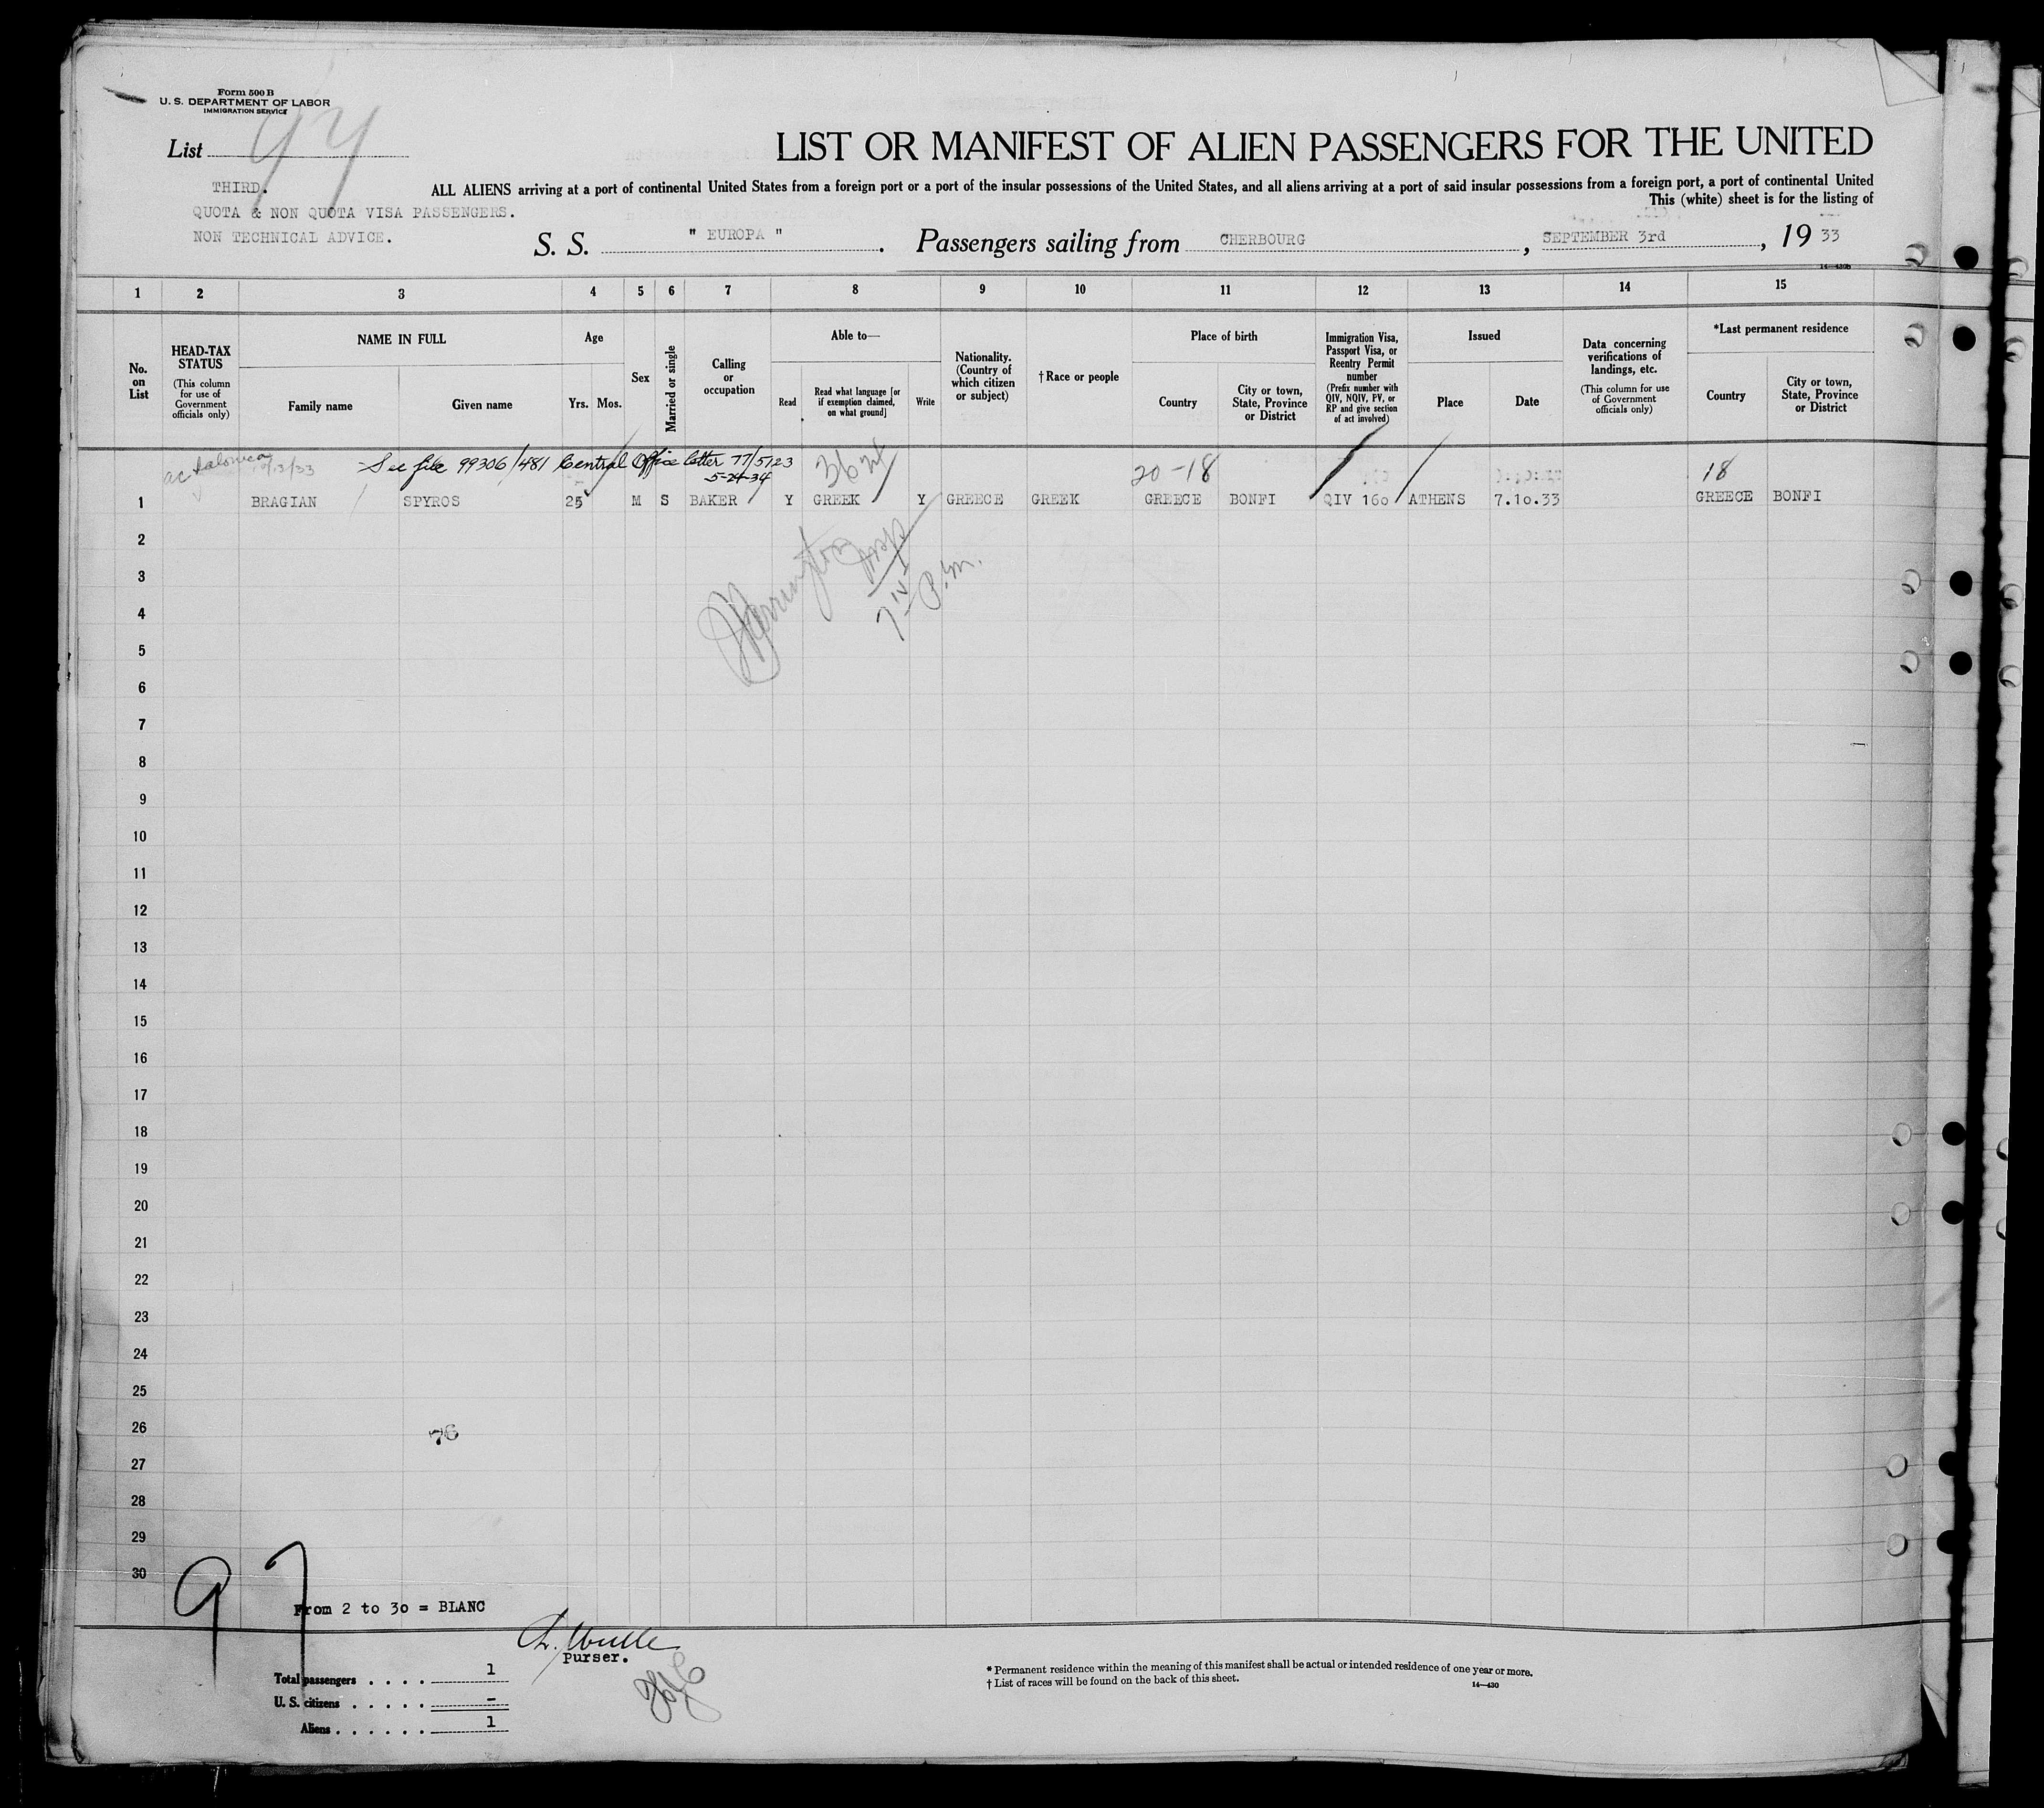 Form 500 B
U. S. DEPARTMENT OF LABOR
IMMIGRATION SERVICE
List
LIST OR MANIFEST OF ALIEN PASSENGERS FOR THE UNITED
THIRD.
QUOTA & NON QUOTA VISA PASSENGERS.
NON TECHNICAL ADVICE.
ALL ALIENS arriving at a port of continental United States from a foreign port or a port of the insular possessions of the United States, and all aliens arriving at a port of said insular possessions from a foreign port, a port of continental United
This (white) sheet is for the listing of
S. S. " EUROPA ". Passengers sailing from CHERBOURG, SEPTEMBER 3rd, 19 33
14—430b
1 2 3 4 5 6 7 8 9 10 11 12 13 14 15
No. on List
HEAD-TAX STATUS
(This column for use of Government officials only)
NAME IN FULL
Family name
Given name
Age
Yrs. Mos.
Sex
Married or single
Calling or occupation
Able to—
Read
Read what language [or if exemption claimed, on what ground]
Write
Nationality. (Country of which citizen or subject)
†Race or people
Place of birth
Country
City or town, State, Province or District
Immigration Visa, Passport Visa, or Reentry Permit number
(Prefix number with QIV, NQIV, PV, or RP and give section of act involved)
Issued
Place
Date
Data concerning verifications of landings, etc.
(This column for use of Government officials only)
*Last permanent residence
Country
City or town, State, Province or District
See file 99306/481 Central Office letter 77/5123
5-24-34
20-18
18
1 BRAGIAN SPYROS 25 M S BAKER Y GREEK Y GREECE GREEK GREECE BONFI QIV 160 ATHENS 7.10.33 GREECE BONFI
2
3
4
5
6
7
8
9
10
11
12
13
14
15
16
17
18
19
20
21
22
23
24
25
26
76
27
28
29
30
97
From 2 to 30 = BLANC
Purser.
Total passengers . . . . 1
U. S. citizens . . . . . –
Aliens . . . . . . 1
* Permanent residence within the meaning of this manifest shall be actual or intended residence of one year or more.
† List of races will be found on the back of this sheet.
14—430